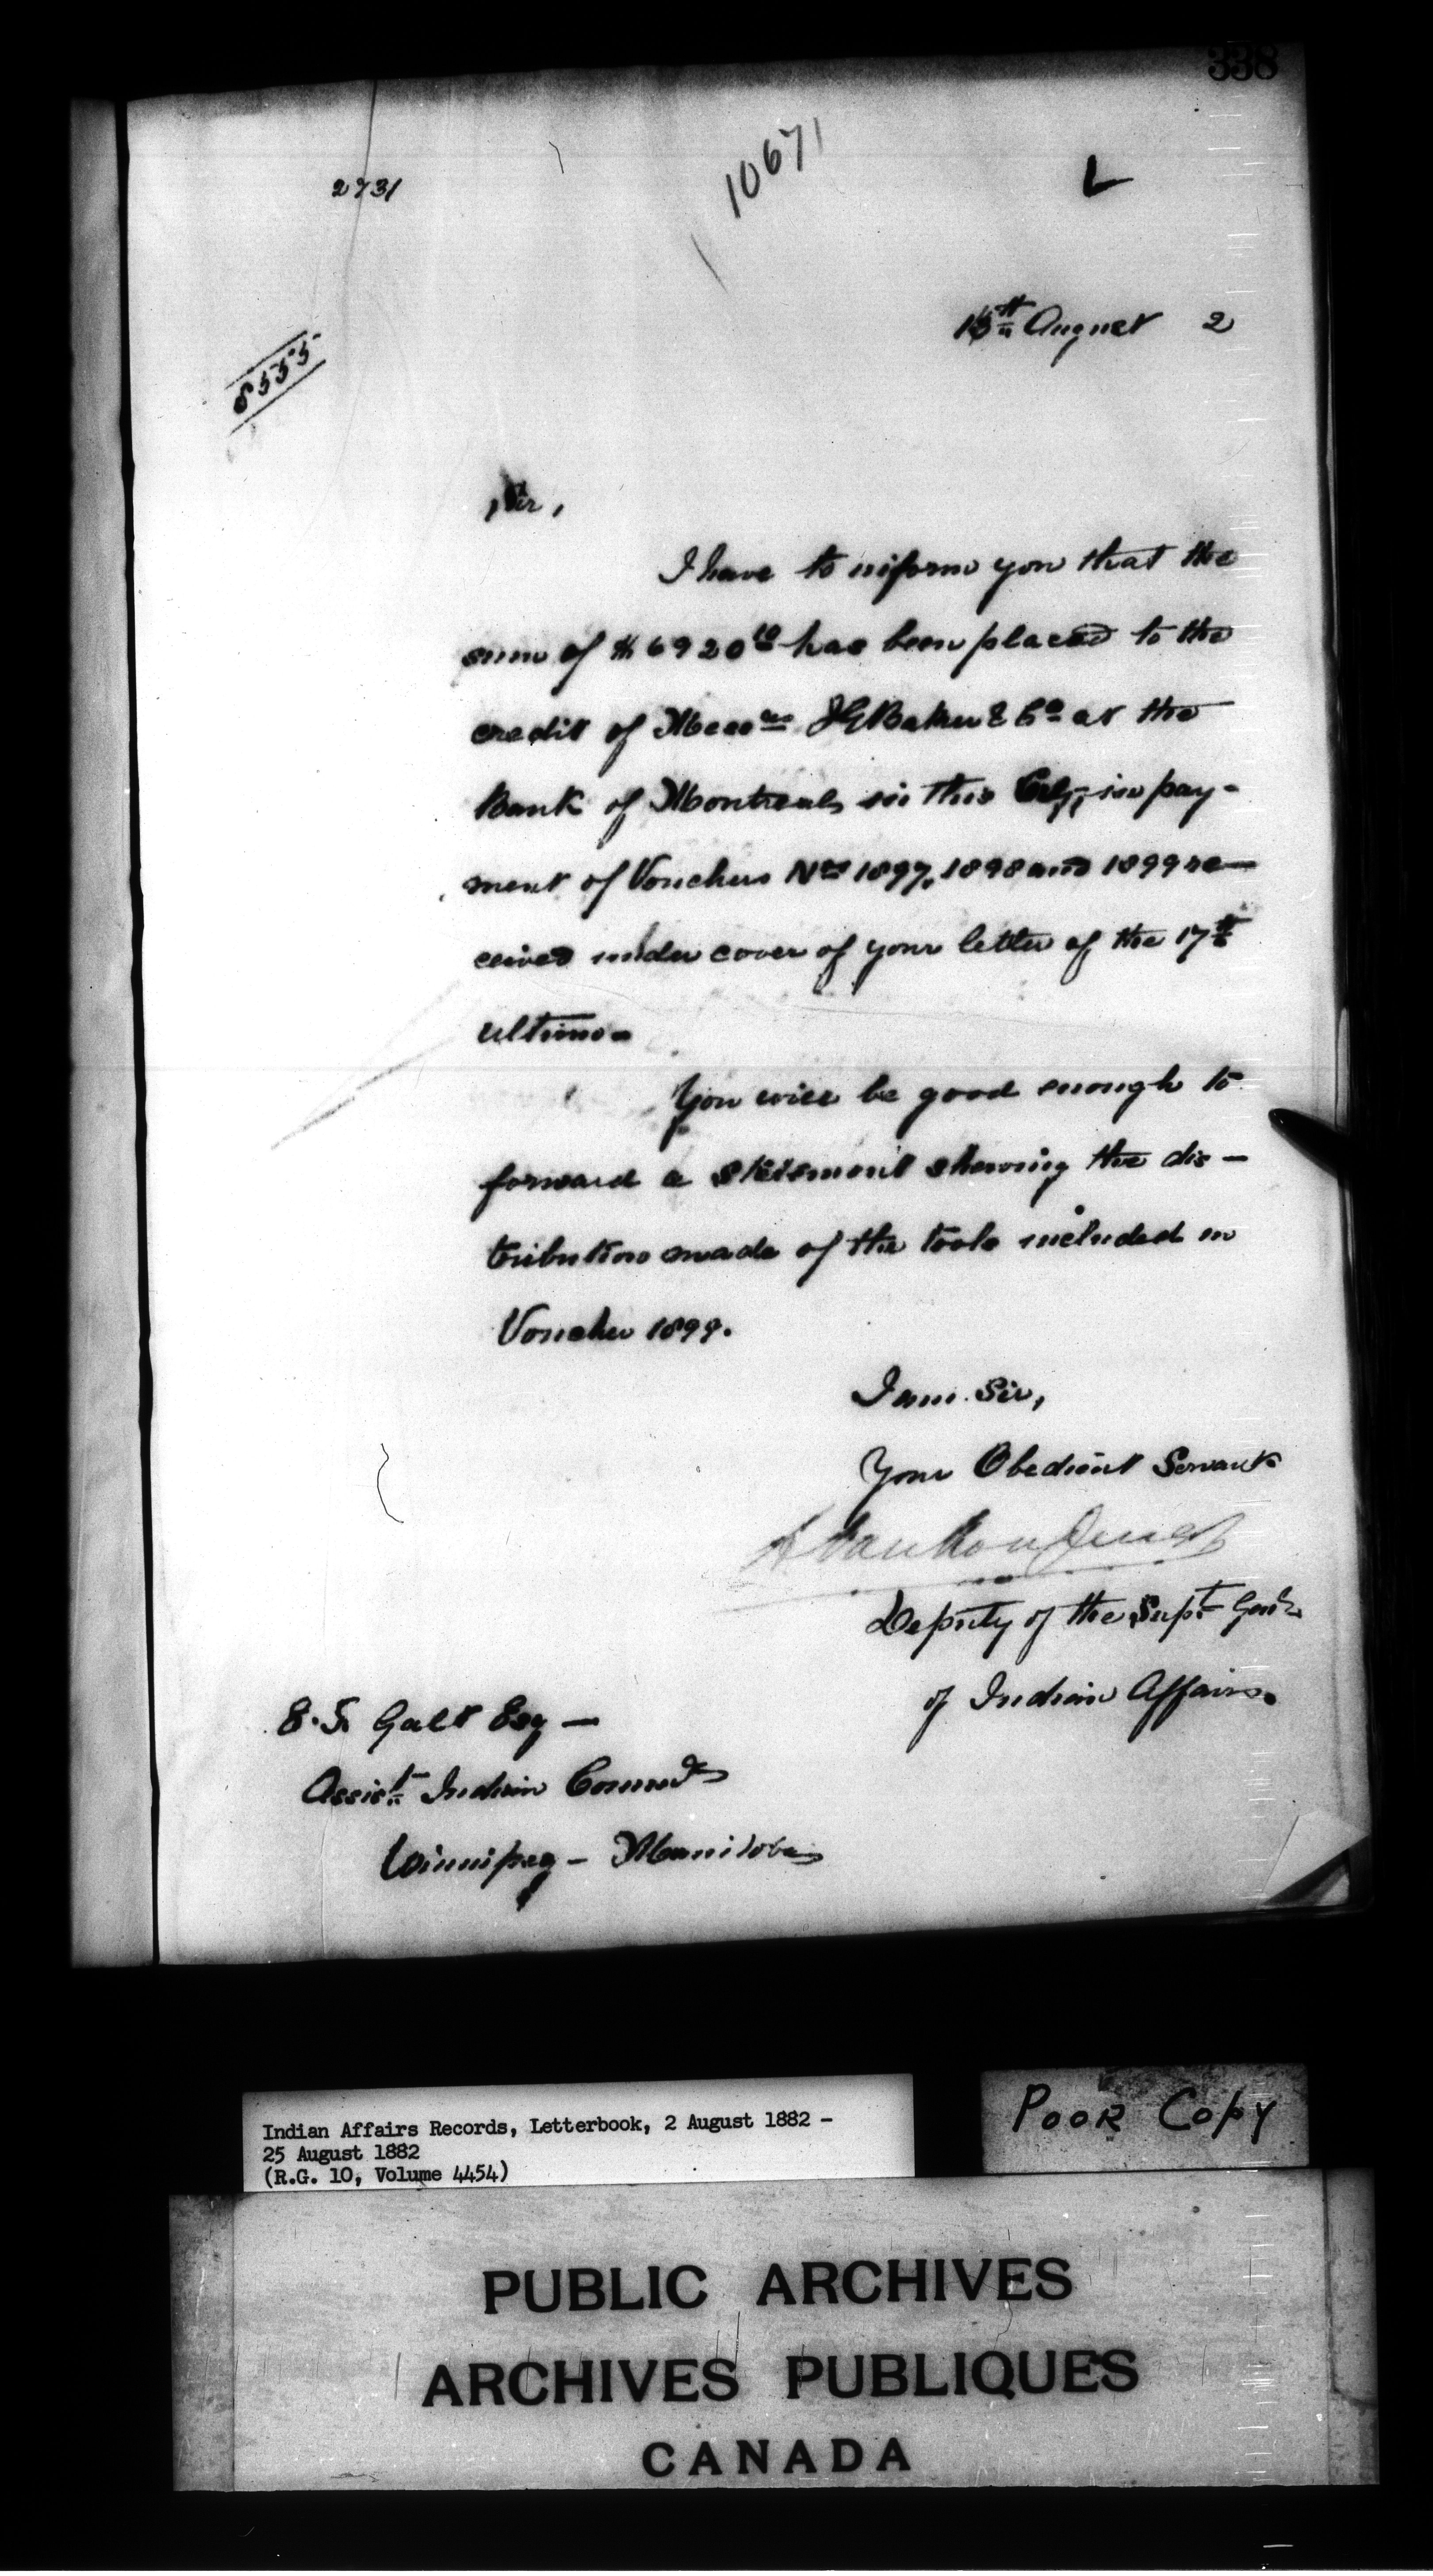 338
10671
L
2731
15th August 2
8555
Sir,
I have to inform you that the
sum of $6920 10 has been placed to the
credit of Messrs J G Baker & Co at the
Bank of Montreal in this City, in pay-
ment of Vouchers Nos 1897, 1898 and 1899 re-
ceived under cover of your letter of the 17th
ultimo.
You will be good enough to
forward a statement shewing the dis-
tribution made of the tools included in
Voucher 1899.
I am Sir,
Your Obedient Servant
L Vankoughnet
Deputy of the Supt Genl
of Indian Affairs.
E. T. Galt Esq —
Assist Indian Commr
Winnipeg - Manitoba
Indian Affairs Records, Letterbook, 2 August 1882 -
25 August 1882
(R.G. 10, Volume 4454)
POOR COPY
PUBLIC ARCHIVES
ARCHIVES PUBLIQUES
CANADA